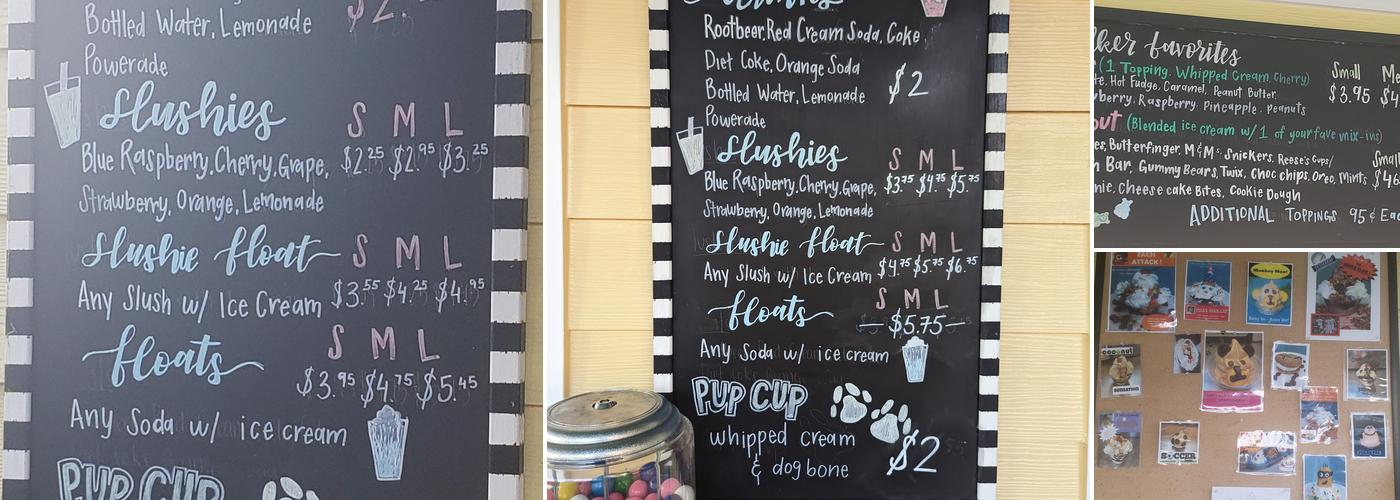 $2
Bottled Water, Lemonade
Powerade
Slushies
S M L
Blue Raspberry, Cherry, Grape, $2.25 $2.95 $3.25
Strawberry, Orange, Lemonade
Slushie float S M L
Any Slush w/ Ice Cream $3.55 $4.25 $4.95
floats S M L
$3.95 $4.75 $5.45
Any Soda w/ ice cream
PUP CUP
Rootbeer, Red Cream Soda, Coke
Diet Coke, Orange Soda
Bottled Water, Lemonade $2
Powerade
Slushies S M L
Blue Raspberry, Cherry, Grape, $3.75 $4.75 $5.75
Strawberry, Orange, Lemonade
Slushie float S M L
Any Slush w/ Ice Cream $4.75 $5.75 $6.75
floats S M L
$5.75
Any Soda w/ ice cream
PUP CUP
whipped cream
& dog bone $2
favorites
(1 Topping, Whipped Cream, Cherry) Small
Hot Fudge, Caramel, Peanut Butter $3.95
Raspberry, Pineapple, Peanuts
(Blended ice cream w/ 1 of your fave mix-ins)
Butterfinger, M&M's, Snickers, Reese's Cups/ Small
Bar, Gummy Bears, Twix, Choc chips, Oreo, Mints
Cheesecake Bites, Cookie Dough
ADDITIONAL TOPPINGS 95¢
ATTACK!
Monkey Man!
coconut
SENSATION
SOCCER